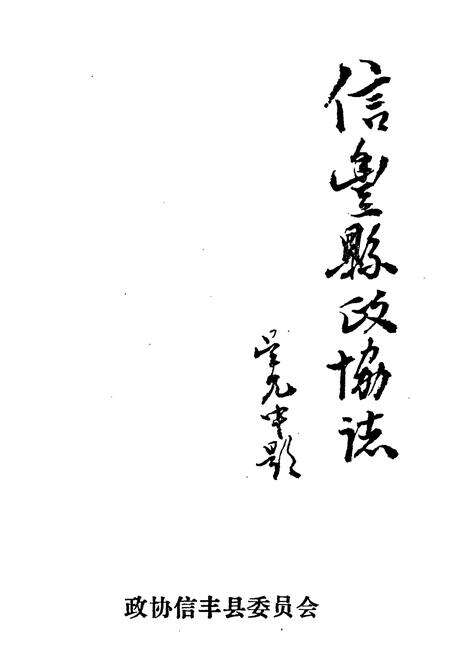 信豐縣政協誌
吴允中题
政协信丰县委员会